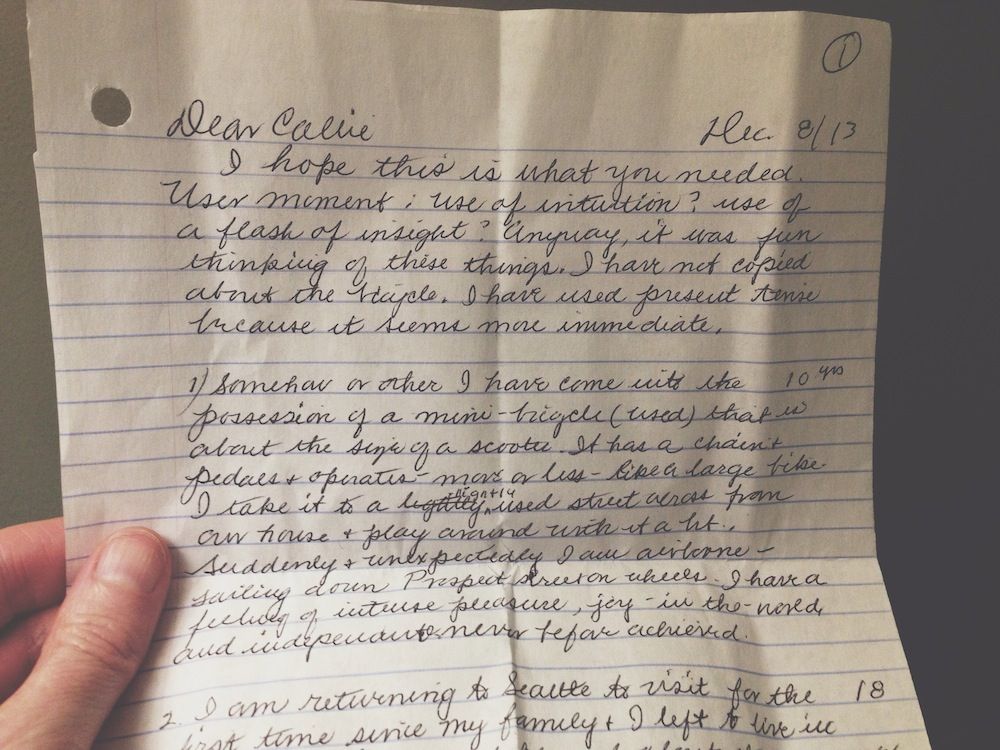 ①
Dear Callie Dec. 8/13
I hope this is what you needed.
User moment: use of intuition? use of
a flash of insight? Anyway, it was fun
thinking of these things. I have not copied
about the bicycle. I have used present tense
because it seems more immediate.
1) Somehow or other I have come into the 10 yrs
possession of a mini-bicycle (used) that is
about the size of a scooter. It has a chain +
pedals + operates - more or less - like a large bike.
I take it to a lightly used street across from
our house + play around with it a bit.
Suddenly + unexpectedly I am airborne -
sailing down Prospect street on wheels. I have a
feeling of intense pleasure, joy-in-the-world,
and independence never before achieved.
2. I am returning to Seattle to visit for the 18
first time since my family + I left to live in